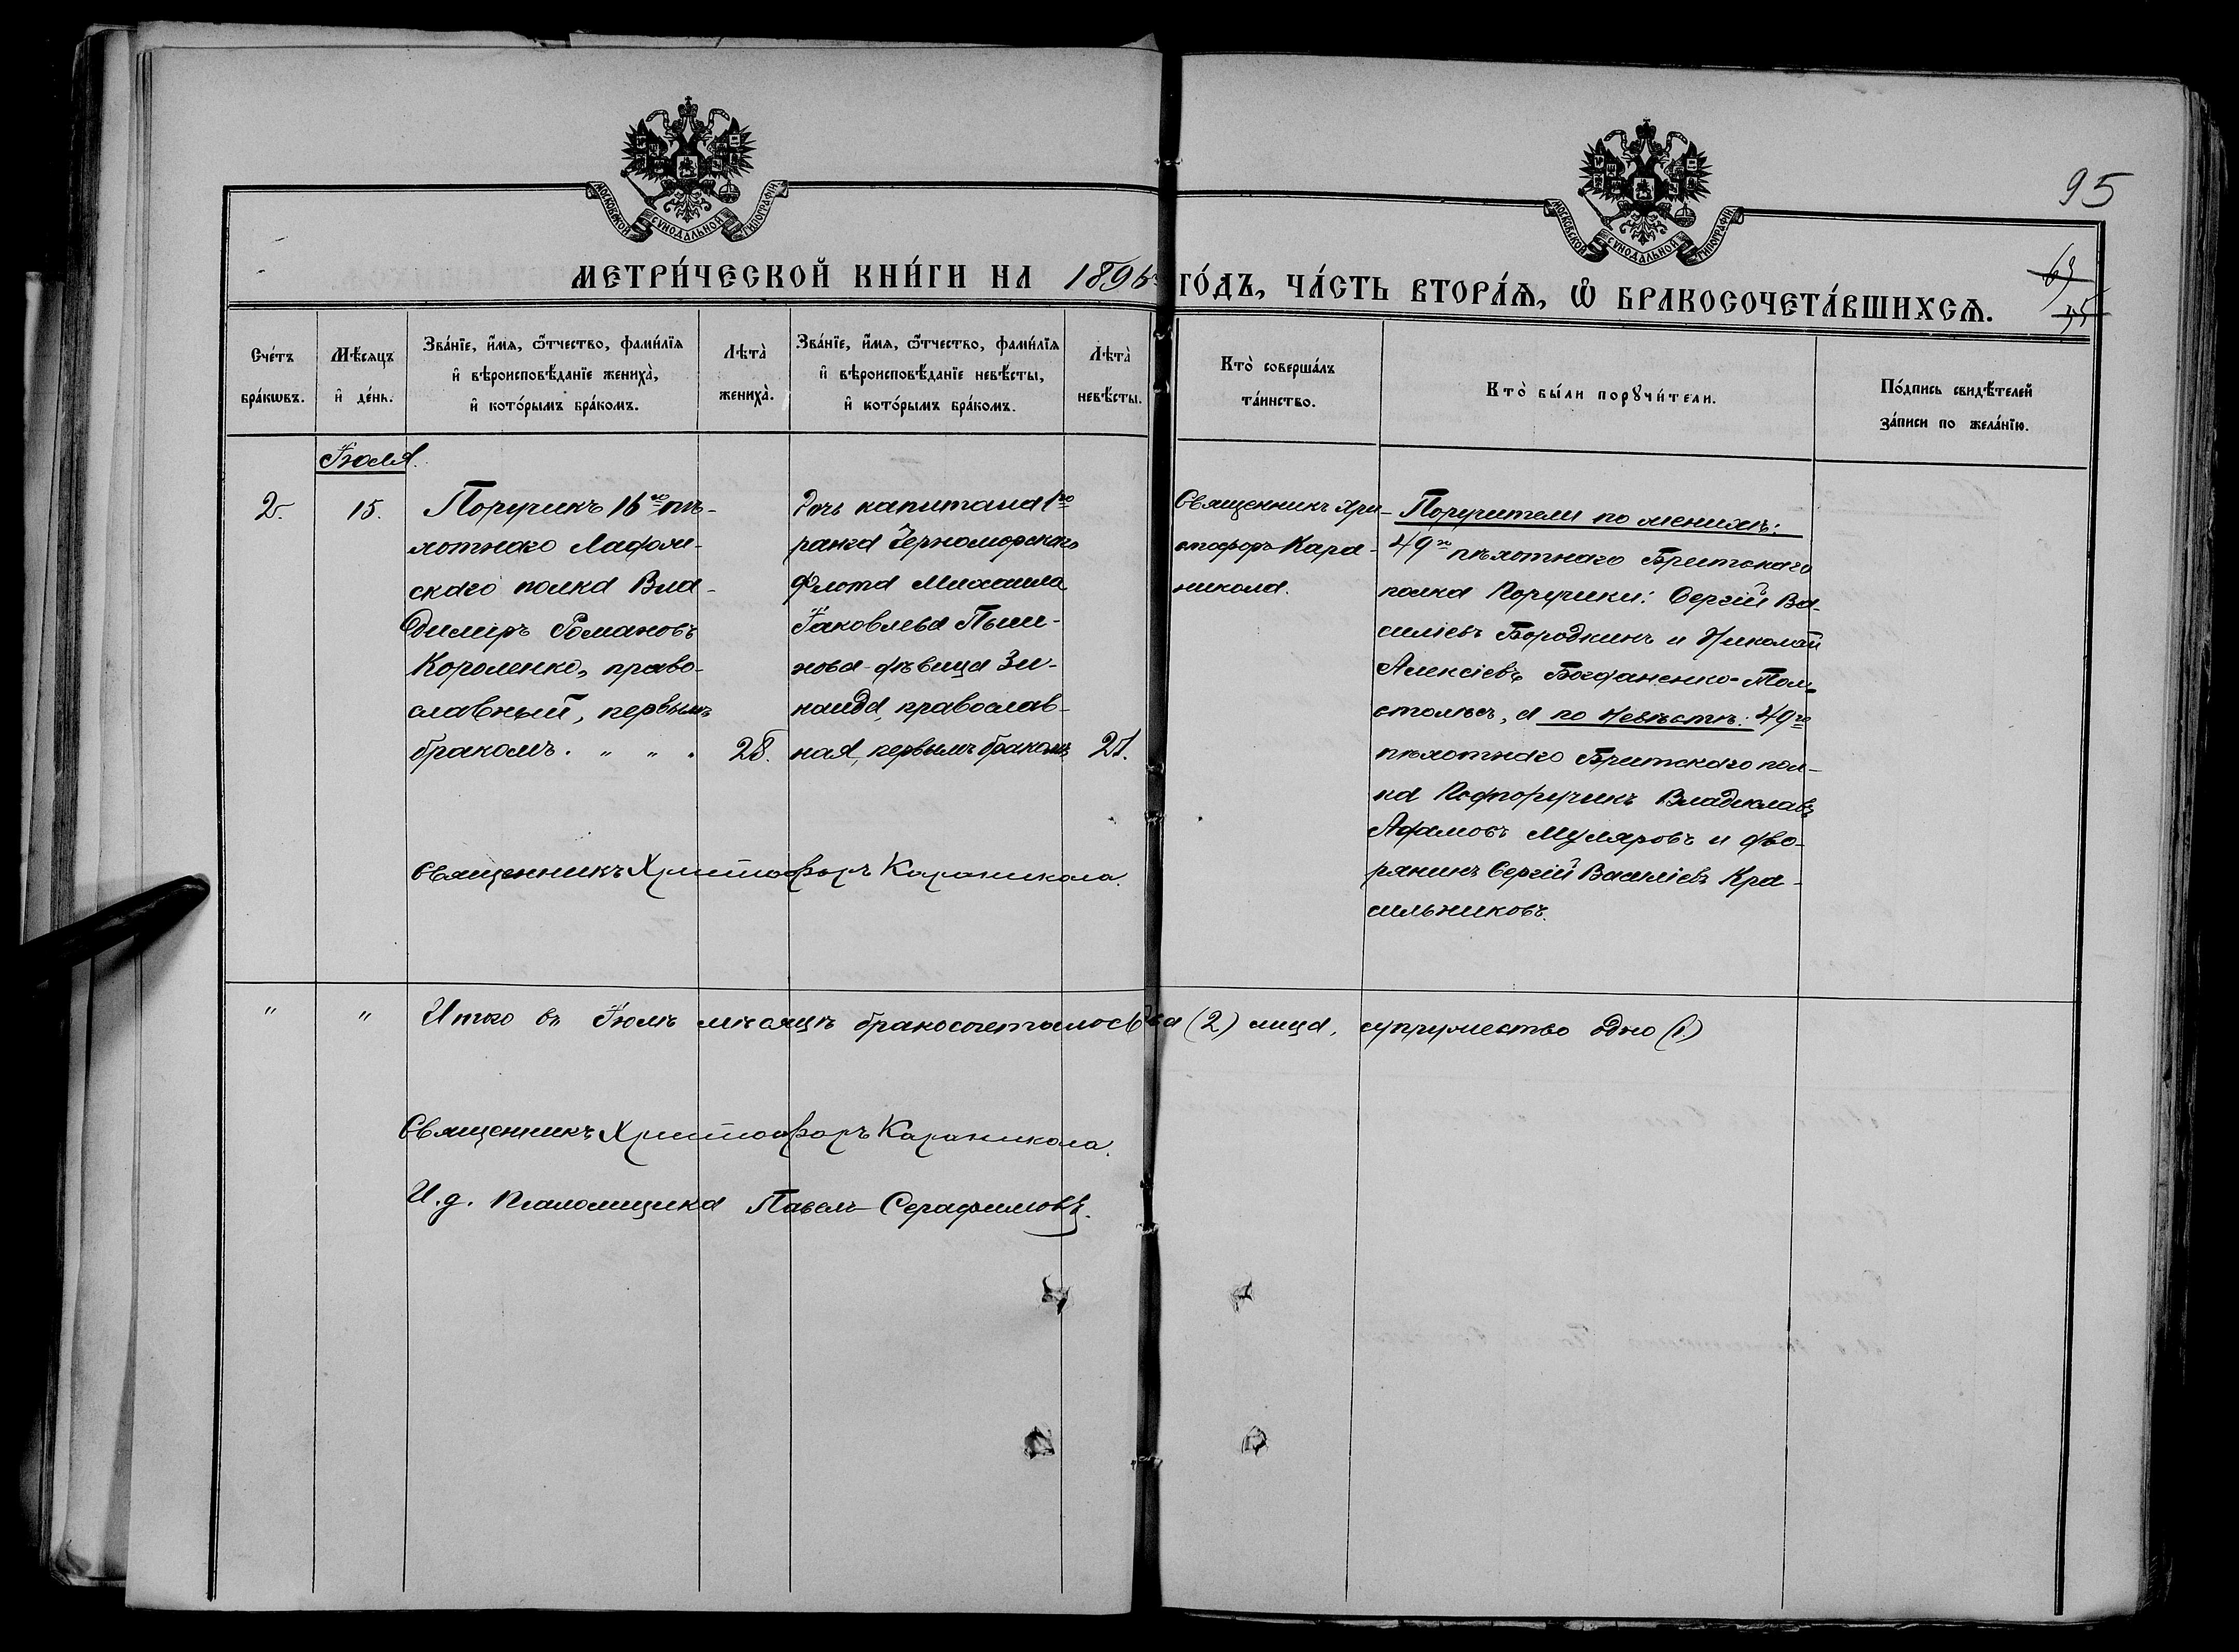 МОСКОВСКОЙ СѴНОДАЛЬНОЙ ТИПОГРАФІИ
МОСКОВСКОЙ СѴНОДАЛЬНОЙ ТИПОГРАФІИ
95
69
МЕТРИ́ЧЕСКОЙ КНИ́ГИ НА 1896й ГО́ДЪ, ЧА́СТЬ ВТОРА́Ѧ, Ѡ҆ БРАКОСОЧЕТА́ВШИХСѦ.
Сче́тъ бра́кѡвъ.
Мѣ́сяцъ и҆ де́нь.
Зва́нїе, и҆́мѧ, ѻ҆́тчество, фами́лїѧ и҆ вѣроисповѣ́данїе жениха̀, и҆ кото́рымъ бра́комъ.
Лѣта̀ жениха̀.
Зва́нїе, и҆́мѧ, ѻ҆́тчество, фами́лїѧ и҆ вѣроисповѣ́данїе невѣ́сты, и҆ кото́рымъ бра́комъ.
Лѣта̀ невѣ́сты.
Кто̀ соверша́лъ та́инство.
Кто̀ бы́ли порꙋчи́тели.
По́дпись свидѣ́телей за́писи по жела́нїю.
Іюля.
2.
15.
Поручикъ 16го пѣ-
хотнаго Ладож-
скаго полка Вла-
димиръ Романовъ
Короленко, право-
славный, первымъ
бракомъ. „ „ .
28.
Дочь капитана 1го
ранга Черноморскаго
флота Михаила
Іаковлева
дѣвица Зи-
наида, православ-
ная, первымъ бракомъ
21.
Священникъ Хри-
стофоръ Кара-
никола.
Поручители по женихѣ:
49го пѣхотнаго Брестскаго
полка Поручики: Сергій Ва-
силіевъ Бородкинъ и Николай
Алексіевъ Богданенко-Тол-
столѣсъ, а по невѣстѣ: 49го
пѣхотнаго Брестскаго пол-
ка Подпоручикъ Владиславъ
Адамовъ Муляровъ и дво-
рянинъ Сергій Василіевъ Кра-
сильниковъ.
Священникъ Христофоръ Караникола.
„ „ Итого въ Іюлѣ мѣсяцѣ бракосочеталось два (2) лица, супружество одно (1)
Священникъ Христофоръ Караникола.
И.д. Псаломщика Павелъ Серафимовъ.